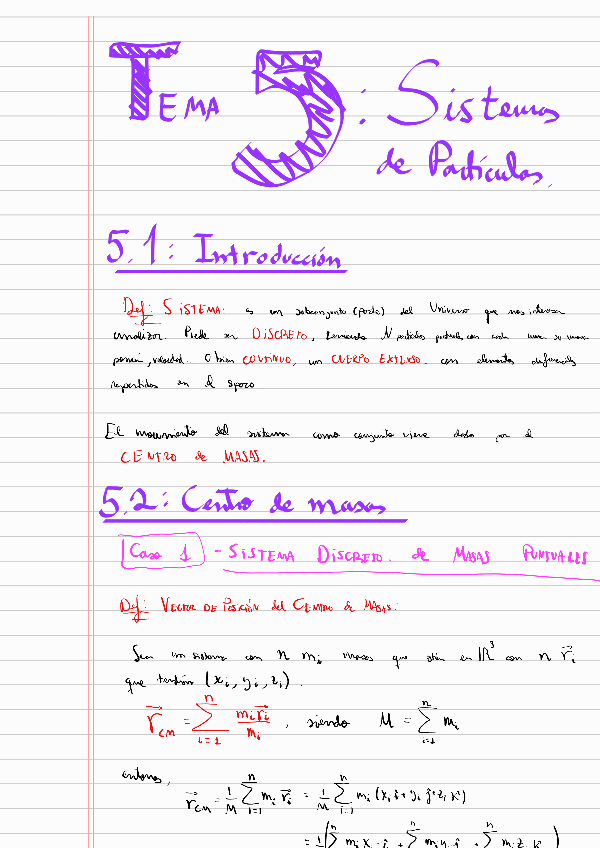 TEMA 5: Sistemas
de Partículas.
5.1: Introducción
Def: SISTEMA: es un subconjunto (parte) del Universo que nos interesa
analizar. Puede ser DISCRETO, N partículas puntuales con cada una su masa
posición, velocidad. O bien CONTINUO, un CUERPO EXTENSO. con elementos
repartidos en el espacio
El movimiento del sistema como conjunto viene dado por el
CENTRO de MASAS.
5.2: Centro de masas
Caso 1 - SISTEMA DISCRETO. de MASAS PUNTUALES
Def: VECTOR DE POSICIÓN del CENTRO de MASAS:
Sea un sistema con n m_i masas que están en ℝ³ con n r⃗_i
que tendrán (x_i, y_i, z_i).
r⃗_CM = ∑_{i=1}^{n} m_i r⃗_i / m_i , siendo M = ∑_{i=1}^{n} m_i
entonces,
r⃗_CM = 1/M ∑_{i=1}^{n} m_i r⃗_i = 1/M ∑_{i=1}^{n} m_i (x_i i + y_i j + z_i k)